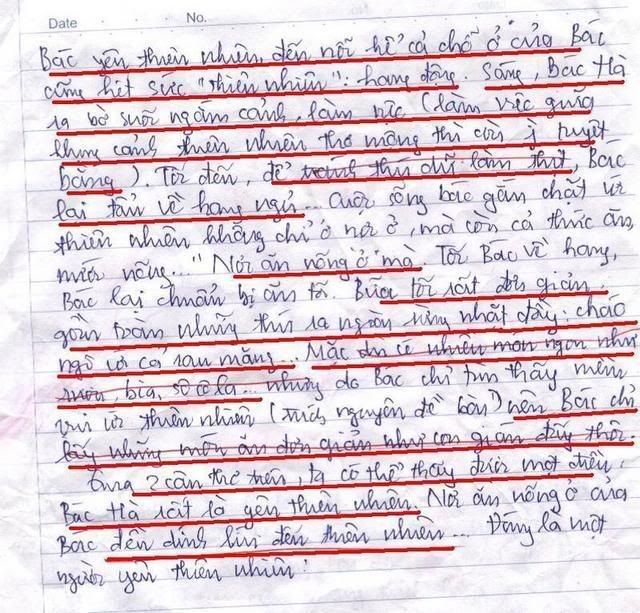 Date No.
Bác yên thiên nhiên, đến nỗi hể cả chổ ở của Bác
cũng hết sức "thiên nhiên": hang động. Sáng, Bác Hà
ra bờ suối ngắm cảnh, làm việc (làm việc giữa
khung cảnh thiên nhiên thơ mộng thì còn j tuyệt
bằng). Tối đến, để tránh thú dữ làm thịt, Bác
lại tản về hang ngủ... Cuộc sống bác gắn chặt vs
thiên nhiên không chỉ ở nơi ở, mà còn cả thức ăn,
nước uống..." Nơi ăn nống ở mà. Tối Bác về hang,
Bác lại chuẩn bị ăn tối. Bữa tối rất đơn giản,
gồm toàn những thứ ra ngoài rừng nhặt đầy: cháo
ngô vs cả rau măng... Mặc du có nhiều món ngon như
rượu, bia, sô cô la... nhưng do Bác chỉ tìm thấy niềm
vui vs thiên nhiên (trích nguyên đề bàn) nên Bác chỉ
lấy những món ăn đơn giản như con gián đấy thôi.
Qua 2 câu thơ trên, ta có thể thấy được một điều,
Bác Hà rất là yên thiên nhiên. Nơi ăn nống ở của
Bác đền dính líu đến thiên nhiên... Đúng là một
người yên thiên nhiên!